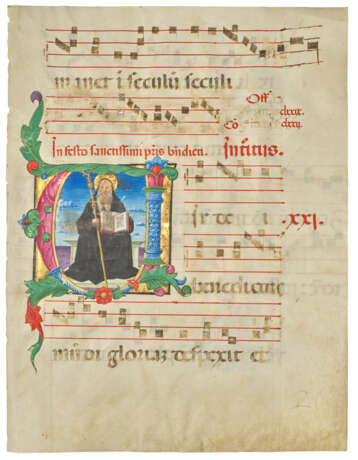 manet i seculū seculi
Off
clxix.
Cō clxxj.
In festo sanctissimi pris bn̄dicti. Intitus.
ir dei XXI.
benedictus
mūdi gloriaz despexit